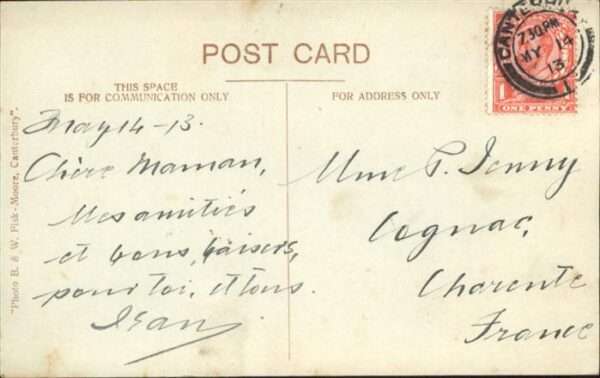 POST CARD
THIS SPACE
IS FOR COMMUNICATION ONLY
FOR ADDRESS ONLY
CANTERBURY
7.30 PM
MY 14
13
1
1 ONE PENNY 1
"Photo B. & W. Fisk-Moore, Canterbury".
May 14-13.
Chère Maman,
Mes amitiés
et bons baisers,
pour toi, et tous.
Jean
Mme P. Jenny
Cognac,
Charente
France